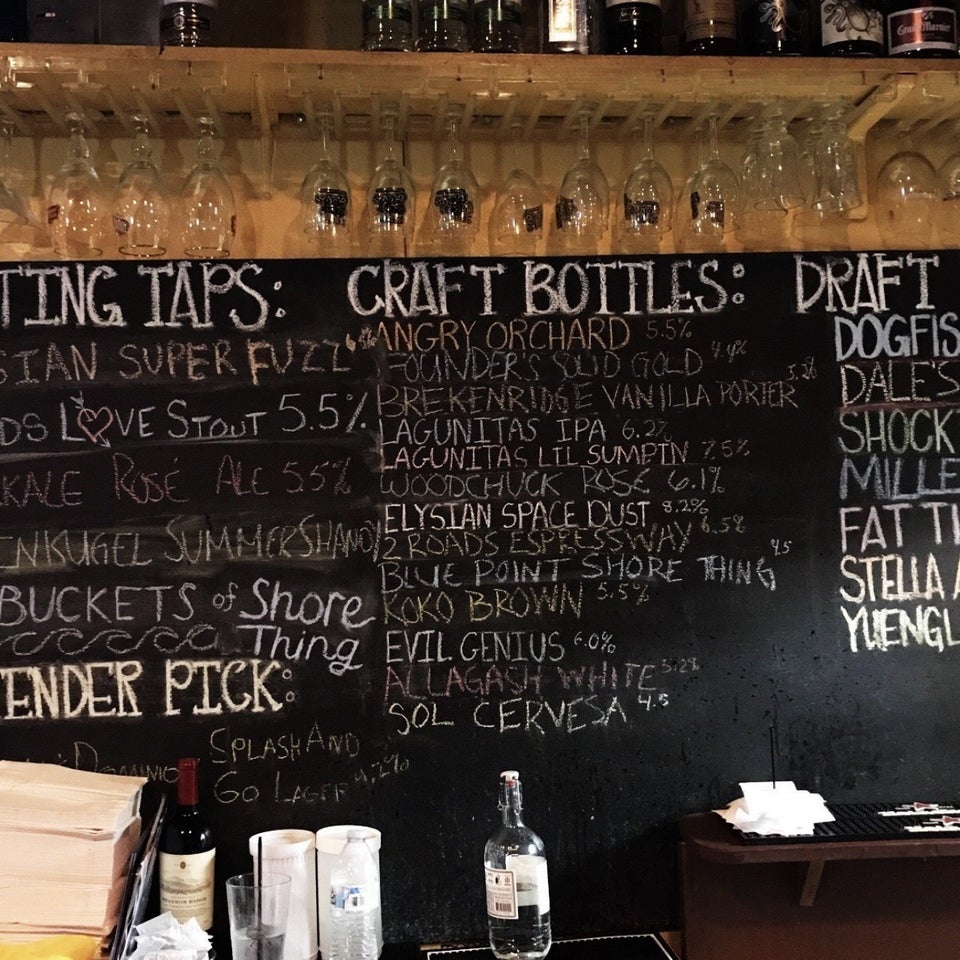 TING TAPS:
SIAN SUPER FUZZ
DS LOVE STOUT 5.5%
KALE ROSÉ ALE 5.5%
ENKUGEL SUMMER SHANDY
BUCKETS of Shore
Thing
TENDER PICK:
DOMINIO
SPLASH AND
GO LAGER 4.2%
CRAFT BOTTLES:
ANGRY ORCHARD 5.5%
FOUNDER'S SOLID GOLD 4.4%
BREKENRIDGE VANILLA PORTER
LAGUNITAS IPA 6.2%
LAGUNITAS LIL SUMPIN 7.5%
WOODCHUCK ROSÉ 6.1%
ELYSIAN SPACE DUST 8.2%
2 ROADS ESPRESSWAY 6.5%
BLUE POINT SHORE THING 4.5
KOKO BROWN 5.5%
EVIL GENIUS 6.0%
ALLAGASH WHITE 5.2%
SOL CERVESA 4.5
DRAFT
DOGFIS
DALE'S
SHOCKT
MILLE
FAT TI
STELLA A
YUENGL